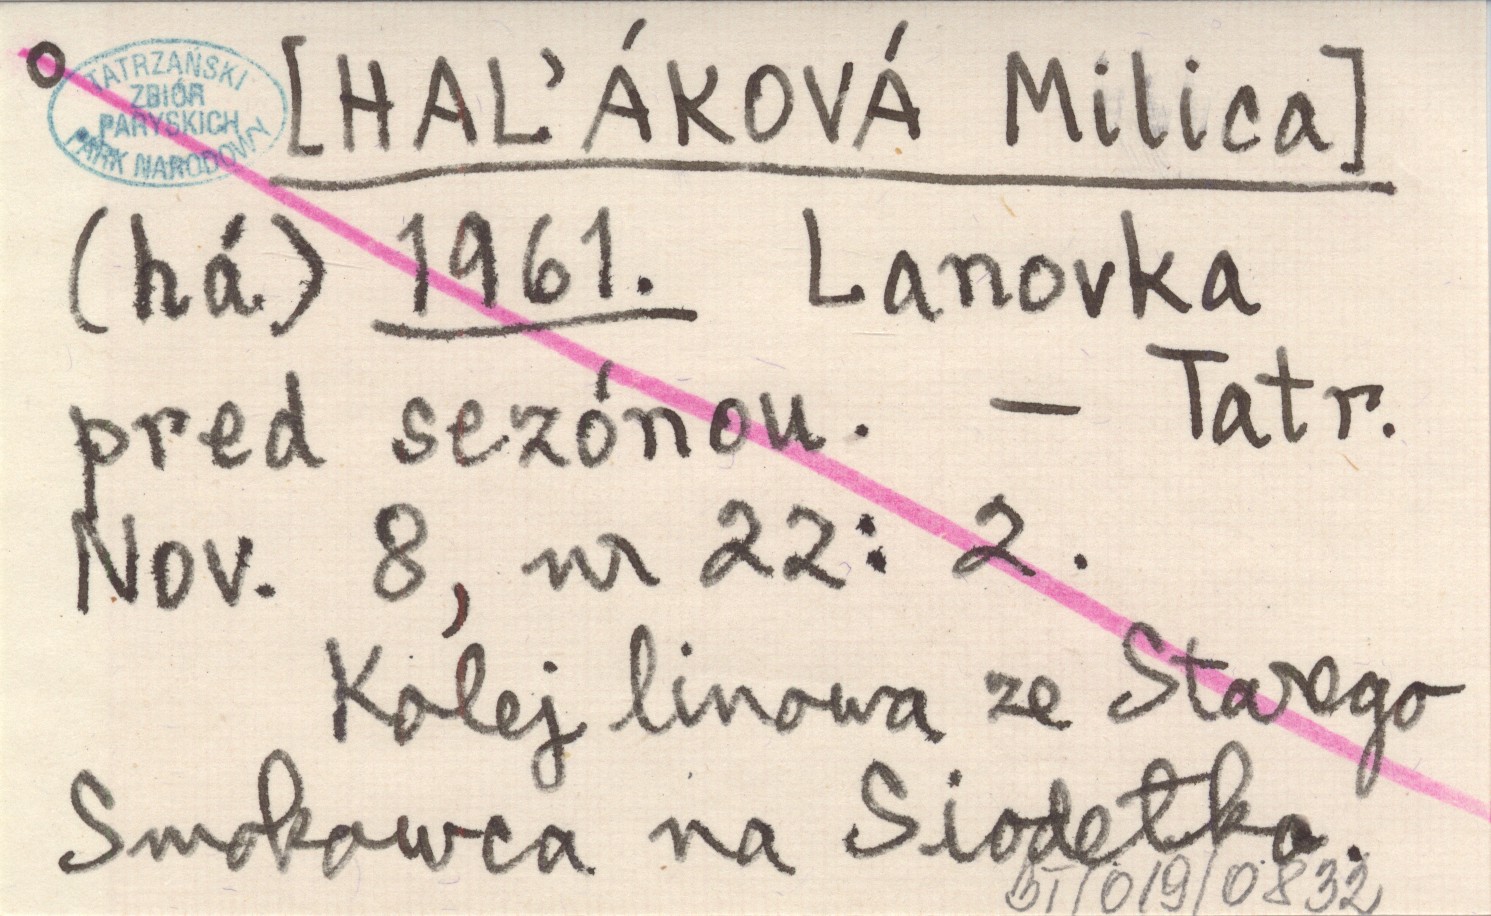 TATRZAŃSKI
ZBIÓR
PARYSKICH
PARK NARODOWY
[HAĽÁKOVÁ Milica]
(há) 1961. Lanovka
pred sezónou. — Tatr.
Nov. 8, nr 22: 2.
Kolej linowa ze Starego
Smokowca na Siodełko.
BT/019/0832